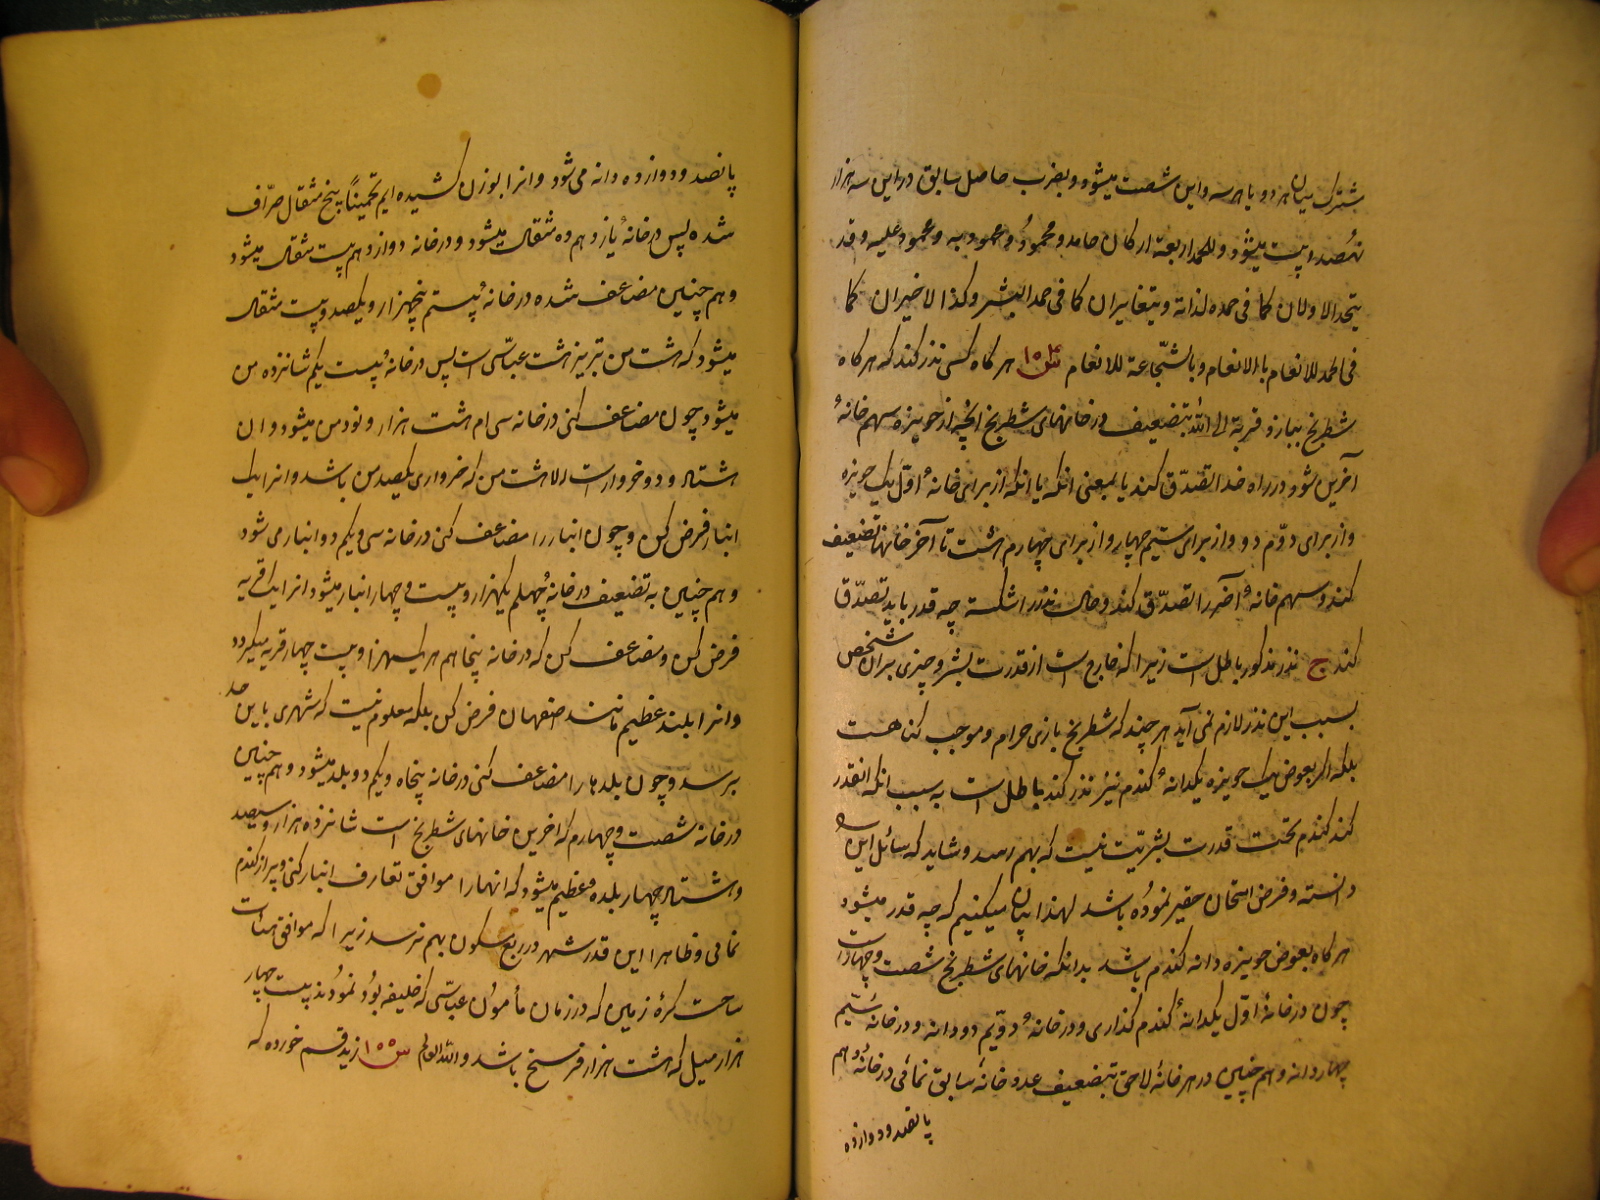 مشترک میان هر دو یا هر سه و این شصت میشود و بضرب حاصل سابق در این سه هزار
نهصد و بیست میشود و للحمد اربعة ارکان حامد و محمود و محمود به و محمود علیه و قد
یتحد الاولان کما فی حمده لذاته و یتغایران کما فی حمد البشر و کذا الاخیران کما
فی الحمد للانعام بالانعام و بالشجاعة للانعام س ۱۵۴ هر گاه کسی نذر کند که هر گاه
شطرنج ببازد قربة الی الله بتضعیف در خانهای شطرنج انچه از جویزه سهم خانهٔ
آخرین شود در راه خدا تصدّق کند یا بمعنی انکه یا انکه از برای خانهٔ اوّل یک جویزه
و از برای دوّم دو و از برای سیّم چهار و از برای چهارم هشت تا آخر خانها تضعیف
کند و سهم خانهٔ آخر را تصدّق کند و حال نذر را شکسته چه قدر باید تصدّق
کند ج نذر مذکور باطل است زیرا که خارج است از قدرت بشر و چیزی بر ان شخص
بسبب این نذر لازم نمی آید هر چند که شطرنج بازی حرام و موجب کناهست
بلکه اکر بعوض یک جویزه یکدانهٔ کندم نیز نذر کند باطل است به سبب انکه انقدر
کندم تحت قدرت بشریّت نیست که بهم رسد و شاید که سائل این را
دانسته و غرض امتحان حقیر نموده باشد لهذا بیان میکنیم که چه قدر میشود
هر گاه بعوض جویزه دانه کندم باشد بدانکه خانهای شطرنج شصت و چهار است
چون در خانهٔ اوّل یکدانهٔ کندم کذاری و در خانهٔ دوّیم دو دانه و در خانهٔ سیّم
چهار دانه و هم چنین در هر خانهٔ لاحق تبضعیف عدد خانهٔ سابق نمائی در خانهٔ دهم
پانصد و دوازده
پانصد و دوازده دانه می شود و انرا بوزن کشیده ایم تخمیناً پنج مثقال صرّاف
شده پس در خانهٔ یازدهم ده مثقال میشود و در خانه دوازدهم بیست مثقال میشود
و هم چنین مضاعف شده در خانهٔ بیستم پنجهزار و یکصد و بیست مثقال
میشود که هشت من تبریز هشت عبّاسی است پس در خانهٔ بیست یکم شانزده من
میشود چون مضاعف کنی در خانه سی ام هشت هزار و نود من میشود و ان
هشتاد و دو خروار است الا هشت من که خرواری یکصد من باشد و انرا یک
انبار فرض کن و چون انبار را مضاعف کنی در خانه سی و یکم دو انبار می شود
و هم چنین به تضعیف در خانهٔ چهلم یکهزار و بیست و چهار انبار میشود انرا یک قریه
فرض کن و مضاعف کن که در خانه پنجاهم هر یکهزار و بیست چهار قریه میکردد
و انرا بلند عظیم مانند اصفهان فرض کن بلکه معلوم نیست که شهری باین حد
برسد و چون بلدها را مضاعف کنی در خانه پنجاه و یکم دو بلد میشود و هم چنین
در خانه شصت و چهارم که اخرین خانهای شطرنج است شانزده هزار و سیصد
و هشتاد چهار بلده عظیم میشود که انها را موافق تعارف انبار کنی و پر از کندم
نمائی و ظاهرا این قدر شهر در ربع مسکون بهم نرسد زیرا که موافق
مساحت کرهٔ زمین که در زمان مأمون عبّاسی که خلیفه بود نمودند بیست چهار
هزار میل که هشت هزار فرسخ باشد و الله العالم س ۱۵۵ زید قسم خورده که